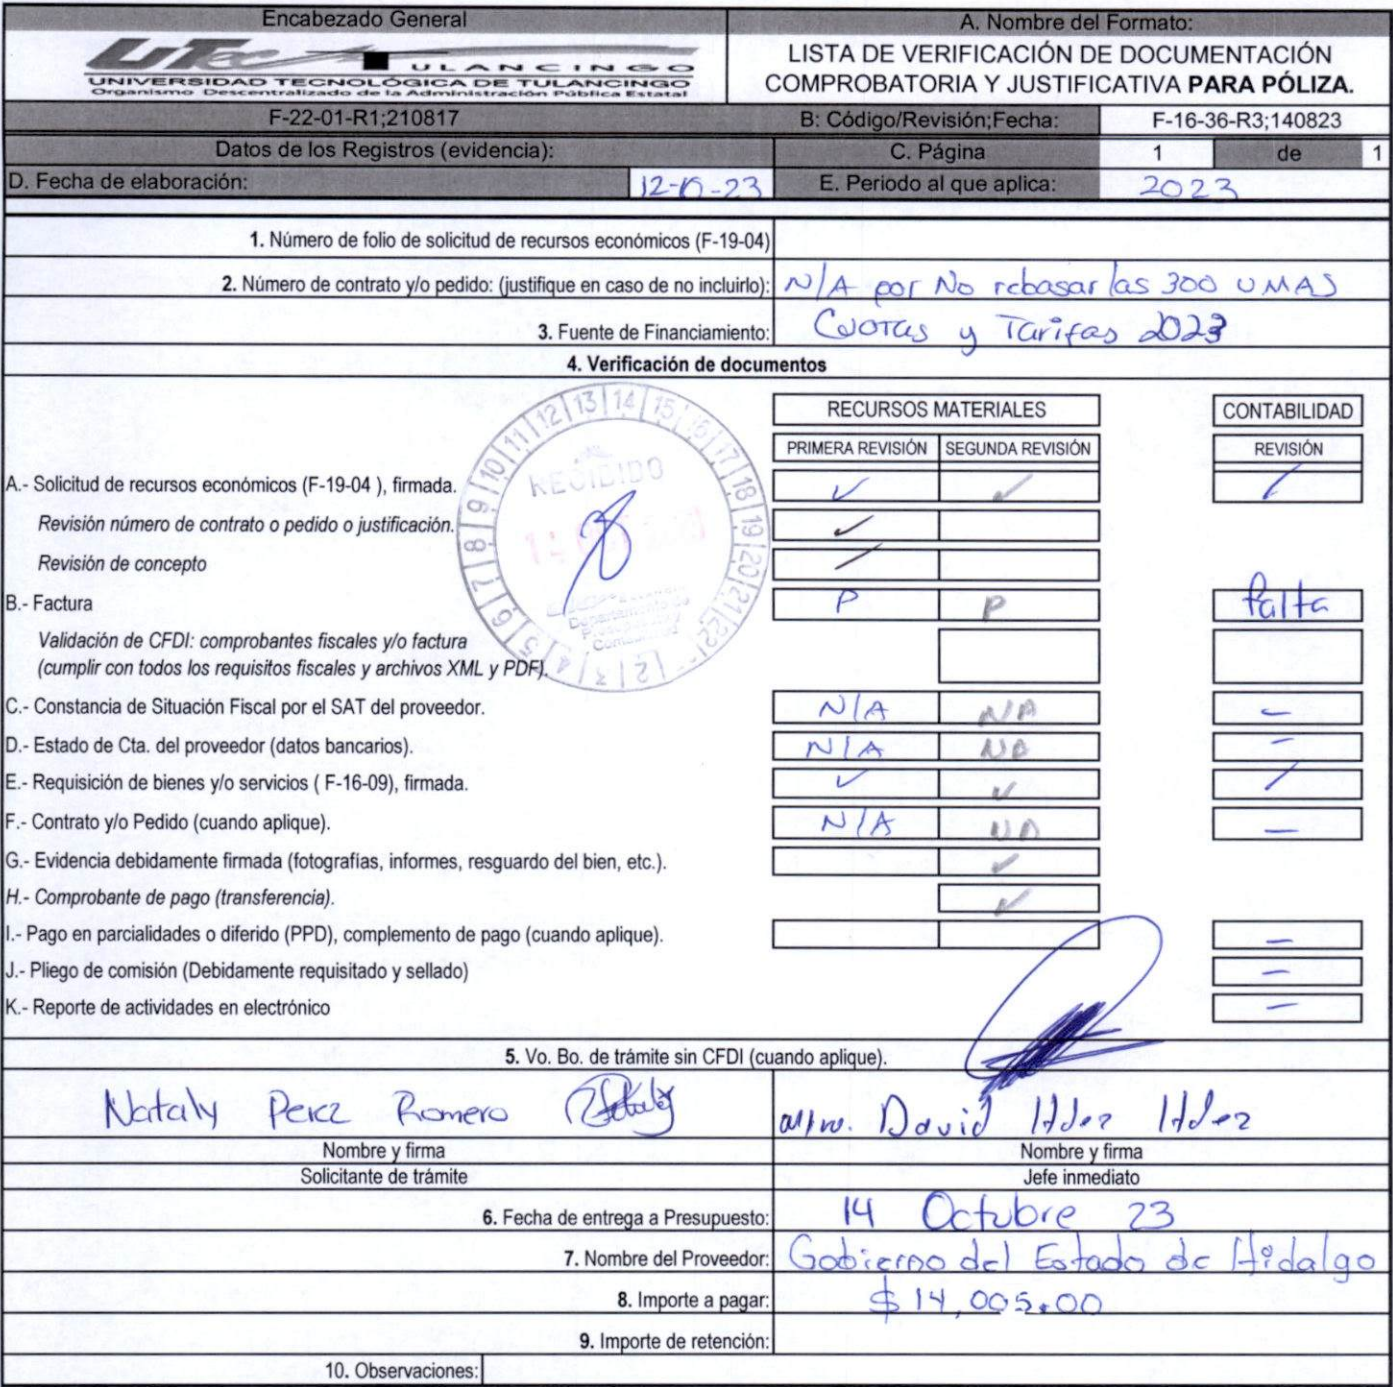 Encabezado General
A. Nombre del Formato:
UTec TULANCINGO
UNIVERSIDAD TECNOLÓGICA DE TULANCINGO
Organismo Descentralizado de la Administración Pública Estatal
LISTA DE VERIFICACIÓN DE DOCUMENTACIÓN
COMPROBATORIA Y JUSTIFICATIVA PARA PÓLIZA.
F-22-01-R1;210817 B: Código/Revisión;Fecha: F-16-36-R3;140823
Datos de los Registros (evidencia): C. Página 1 de 1
D. Fecha de elaboración: 12-10-23 E. Periodo al que aplica: 2023
1. Número de folio de solicitud de recursos económicos (F-19-04)
2. Número de contrato y/o pedido: (justifique en caso de no incluirlo): N/A por No rebasar las 300 UMAS
3. Fuente de Financiamiento: Cuotas y Tarifas 2023
4. Verificación de documentos
RECURSOS MATERIALES CONTABILIDAD
PRIMERA REVISIÓN SEGUNDA REVISIÓN REVISIÓN
A.- Solicitud de recursos económicos (F-19-04 ), firmada. ✓ ✓ /
Revisión número de contrato o pedido o justificación. ✓
Revisión de concepto /
B.- Factura P P falta
Validación de CFDI: comprobantes fiscales y/o factura
(cumplir con todos los requisitos fiscales y archivos XML y PDF).
C.- Constancia de Situación Fiscal por el SAT del proveedor. N/A N/A –
D.- Estado de Cta. del proveedor (datos bancarios). N/A NA –
E.- Requisición de bienes y/o servicios ( F-16-09), firmada. ✓ ✓ /
F.- Contrato y/o Pedido (cuando aplique). N/A NA –
G.- Evidencia debidamente firmada (fotografías, informes, resguardo del bien, etc.). ✓
H.- Comprobante de pago (transferencia). ✓
I.- Pago en parcialidades o diferido (PPD), complemento de pago (cuando aplique). –
J.- Pliego de comisión (Debidamente requisitado y sellado) –
K.- Reporte de actividades en electrónico –
RECIBIDO
Departamento de
Contabilidad
1 2 3 4 5 6 7 8 9 10 11 12 13 14 15 16 17 18 19 20 21 22
5. Vo. Bo. de trámite sin CFDI (cuando aplique).
Nataly Perez Romero
Mtro. David Hdez Hdez
Nombre y firma Nombre y firma
Solicitante de trámite Jefe inmediato
6. Fecha de entrega a Presupuesto: 14 Octubre 23
7. Nombre del Proveedor: Gobierno del Estado de Hidalgo
8. Importe a pagar: $ 14,005.00
9. Importe de retención:
10. Observaciones: